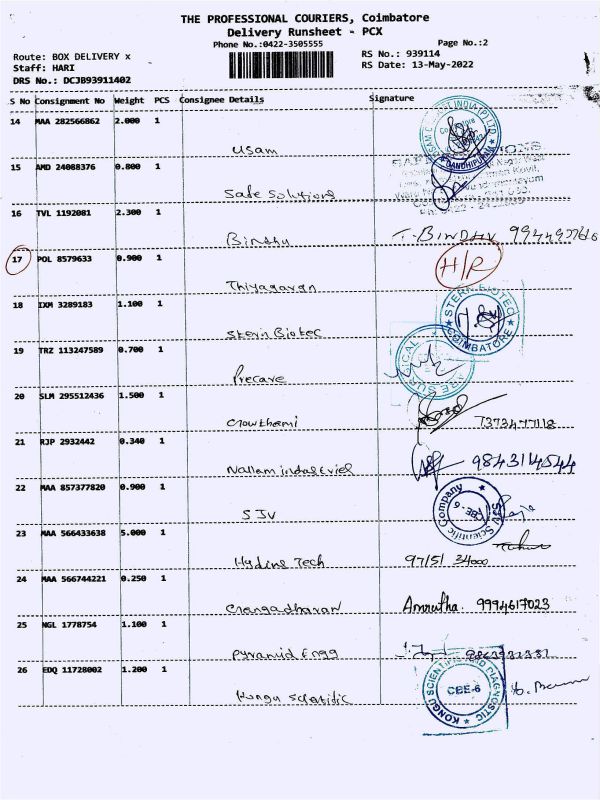 THE PROFESSIONAL COURIERS, Coimbatore
Delivery Runsheet - PCX
Phone No.:0422-3505555
Page No.:2
Route: BOX DELIVERY x
Staff: HARI
DRS No.: DCJB93911402
RS No.: 939114
RS Date: 13-May-2022
S No Consignment No Weight PCS Consignee Details Signature
14 MAA 282566862 2.000 1
Usam
GANDHIPURAM
15 AMD 24088376 0.800 1
Safe Solutions
16 TVL 1192081 2.300 1
Bindhu T. BINDHU
17 POL 8579633 0.900 1 H/R
Thiyagaran
18 IXM 3289183 1.100 1
Stern Biotec
STERN BIOTEC
COIMBATORE
19 TRZ 113247589 0.700 1
Precare
SURGICAL
20 SLM 295512436 1.500 1
Gowthami 7373477118
21 RJP 2932442 0.340 1
Nallam
22 MAA 857377820 0.900 1
SJV
SJV Scientific Company
CBE-6
23 MAA 566433638 5.000 1
Hydine Tech 97151 34000
24 MAA 566744221 0.250 1
Gangadharan Amrutha. 9994617023
25 NGL 1778754 1.100 1
Pyramid Engg
26 EDQ 11728002 1.200 1
Kongu Scientific
KONGU SCIENTIFIC AND DIAGNOSTIC
CBE-6